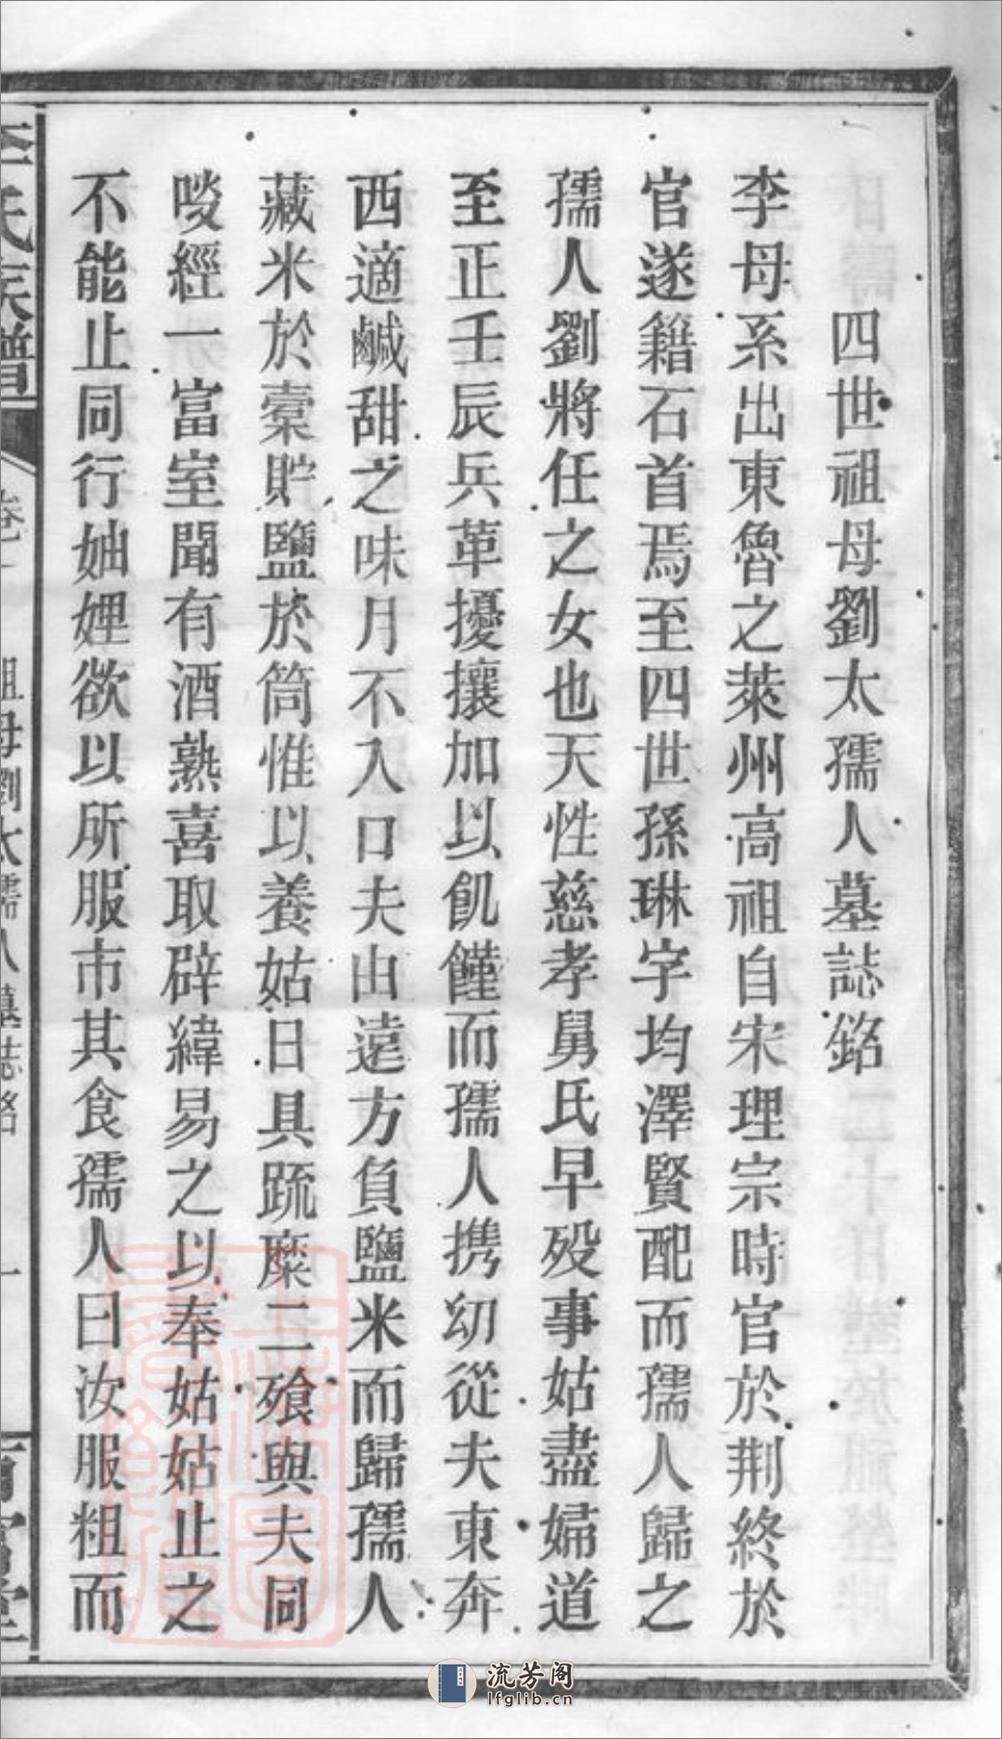 四世祖母劉太孺人墓誌銘
李母系出東魯之萊州高祖自宋理宗時官於荆終於
官遂籍石首焉至四世孫琳字均澤賢配而孺人歸之
孺人劉將任之女也天性慈孝舅氏早殁事姑盡婦道
至正壬辰兵革擾攘加以飢饉而孺人携幼從夫東奔
西適鹹甜之味月不入口夫由遠方負鹽米而歸孺人
藏米於橐貯鹽於筒惟以養姑日具䟽糜二飱與夫同
啖經一富室聞有酒熟喜取辟緯易之以奉姑姑止之
不能止同行妯娌欲以所服市其食孺人曰汝服粗而
李氏族譜
祖母劉太孺人墓誌銘
一
流芳阁
lfglib.cn